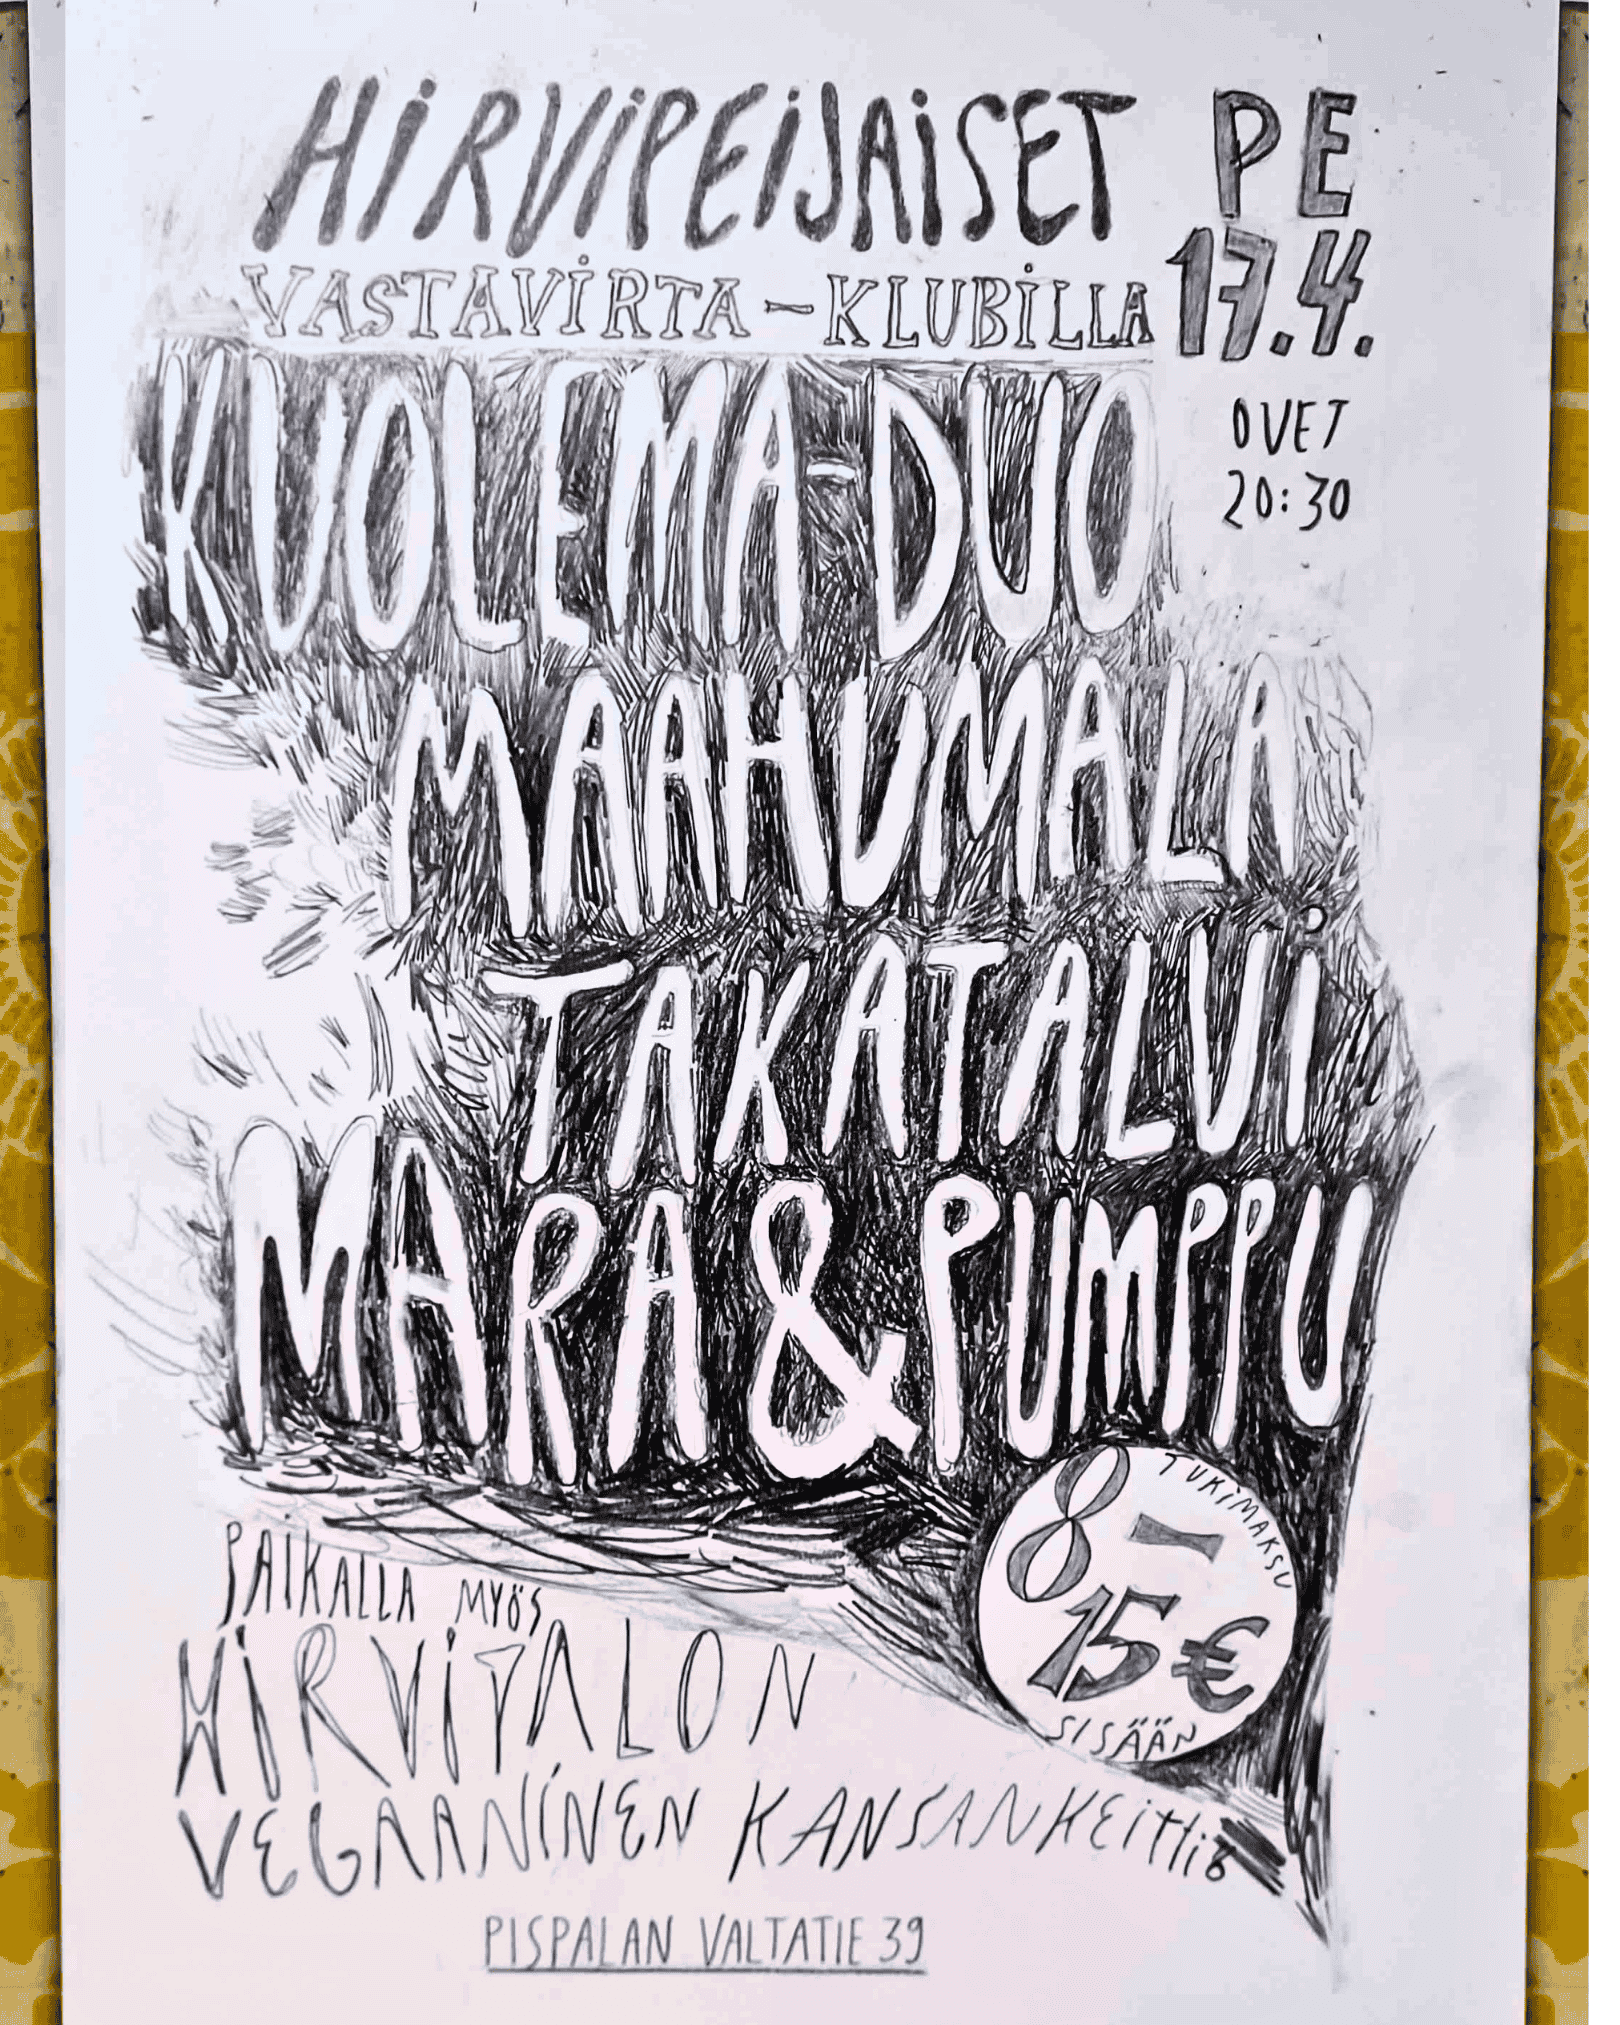 HIRVIPEIJAISET
VASTAVIRTA-KLUBILLA
PE
17.4.
OVET
20:30
KUOLEMA-DUO
MAAHUMALA
TAKATALVI
MARA & PUMPPU
TUKIMAKSU
8-
15€
SISÄÄN
PAIKALLA MYÖS
HIRVITALON
VEGAANINEN KANSANKEITTIÖ
PISPALAN VALTATIE 39